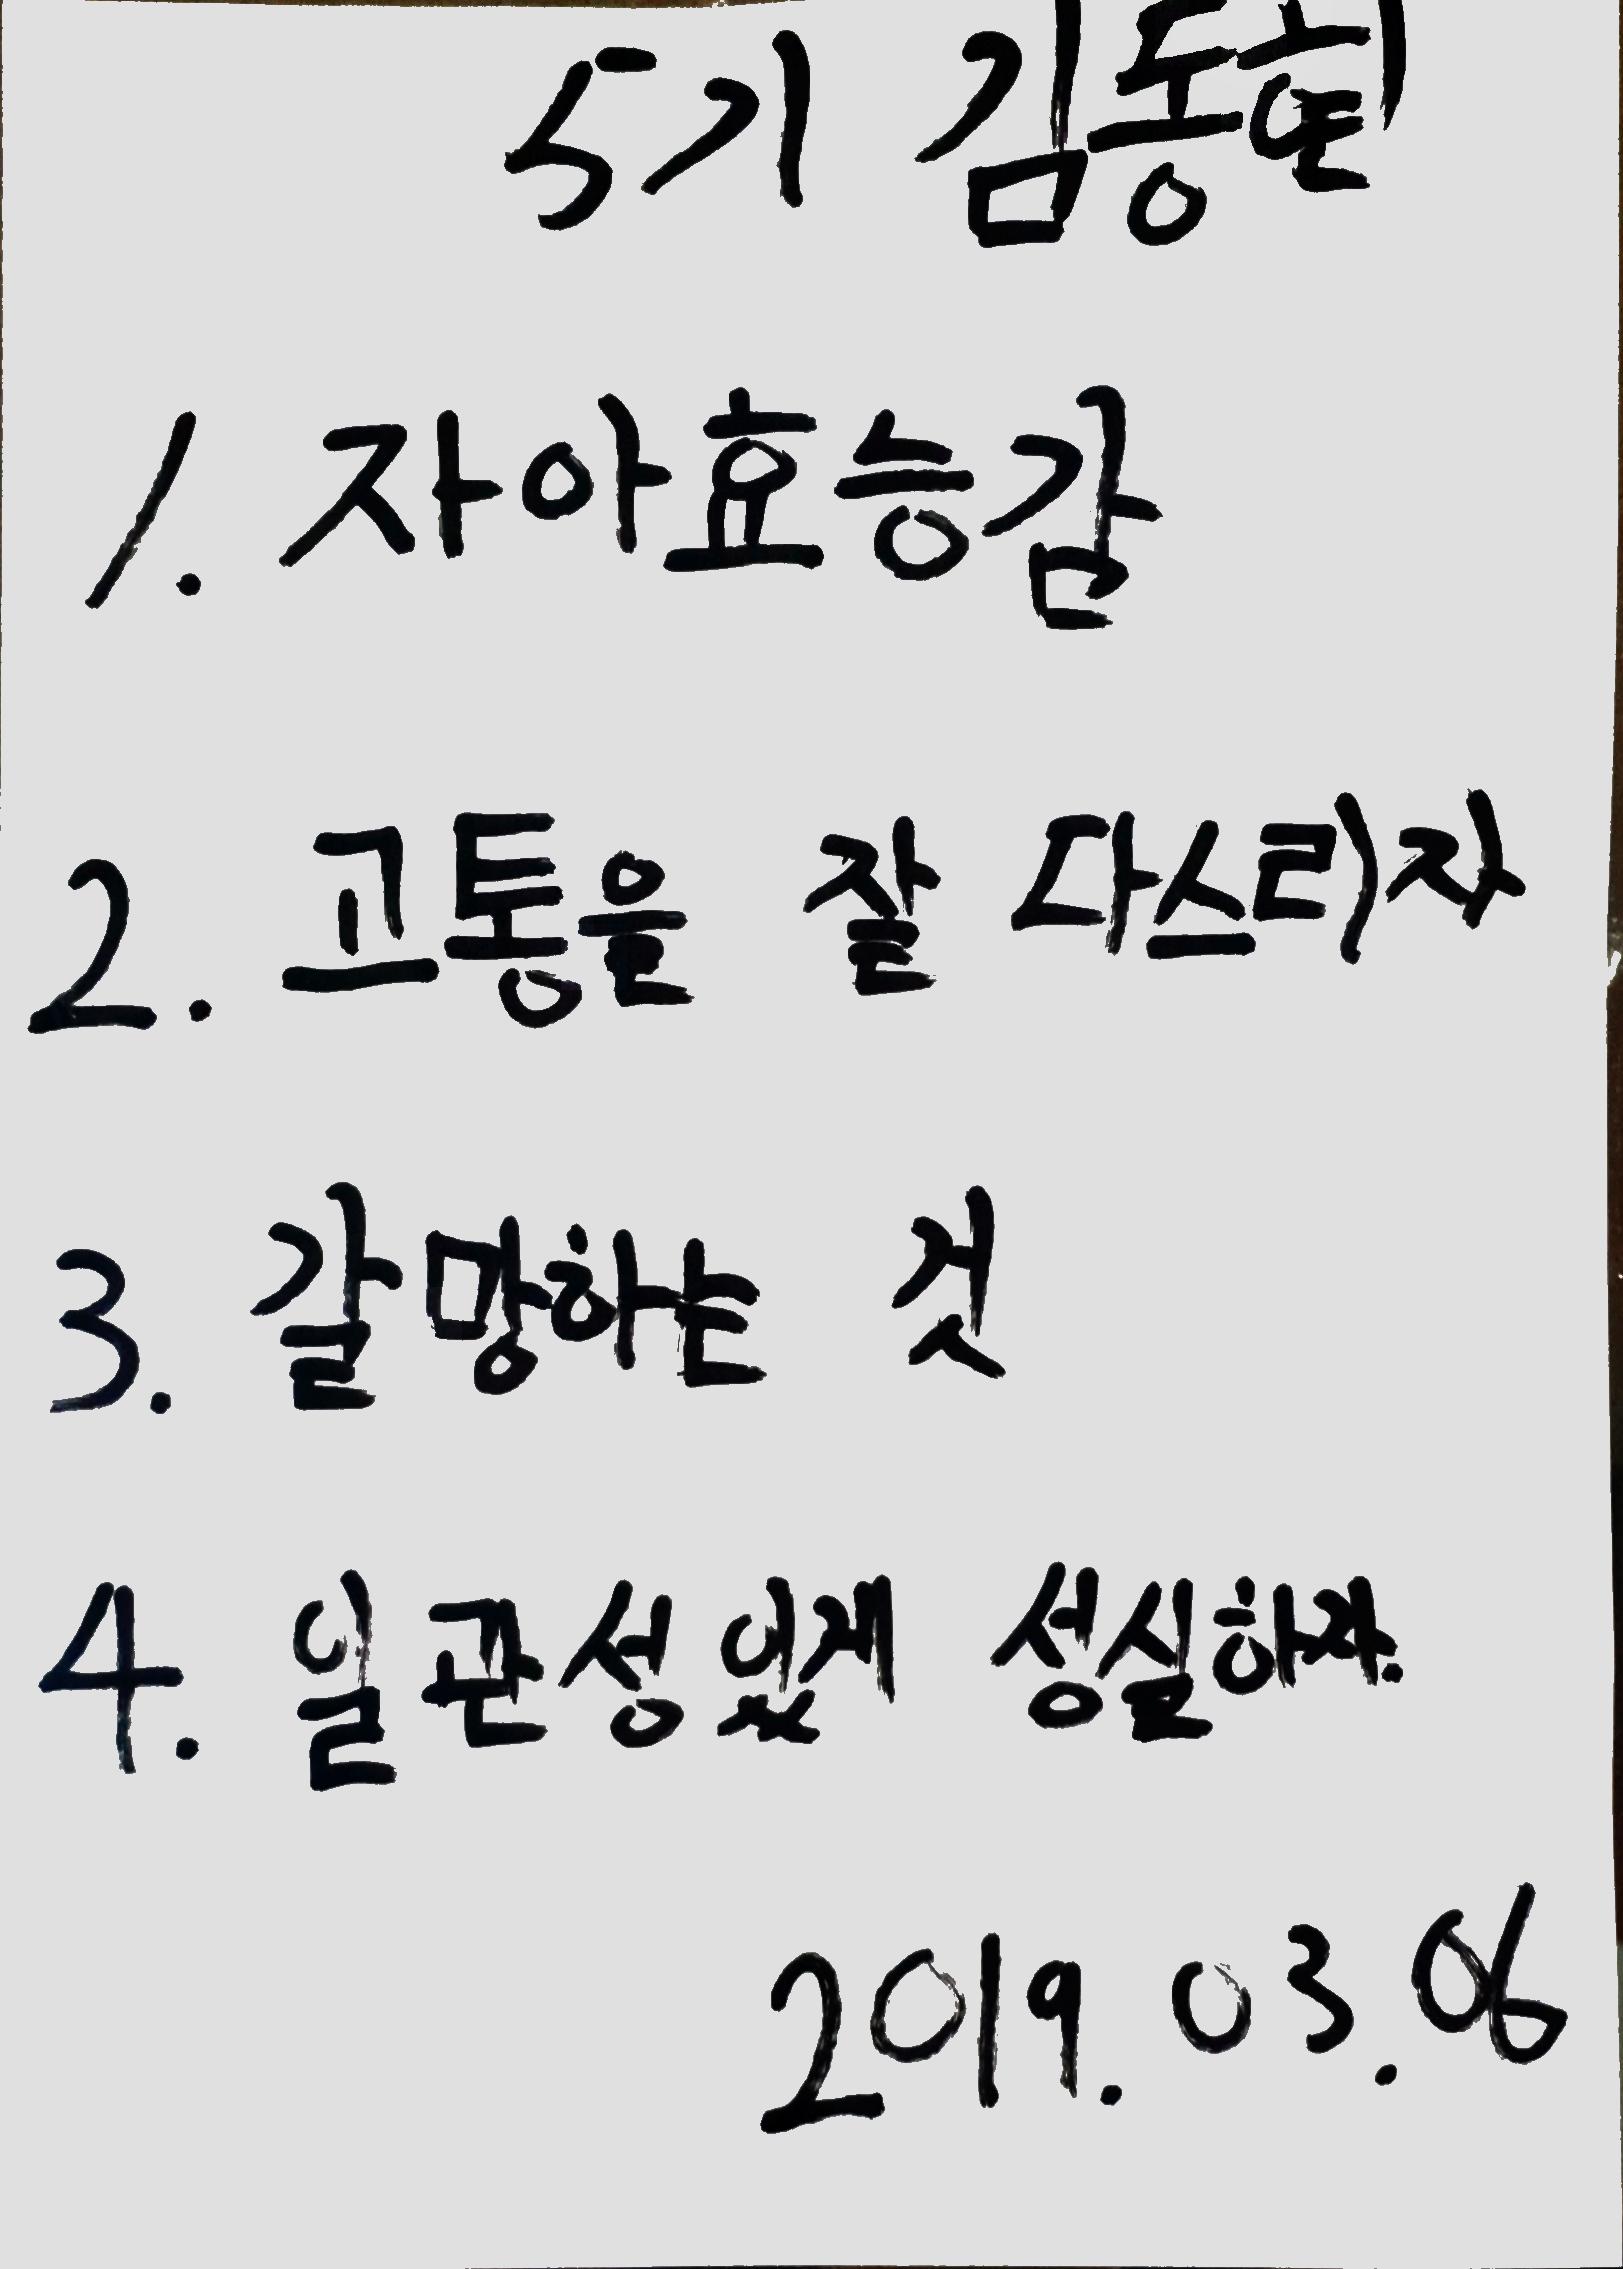 5기 김동현
1. 자아효능감
2. 고통을 잘 다스리자
3. 갈망하는 것
4. 일관성있게 성실하자.
2019. 03. 06